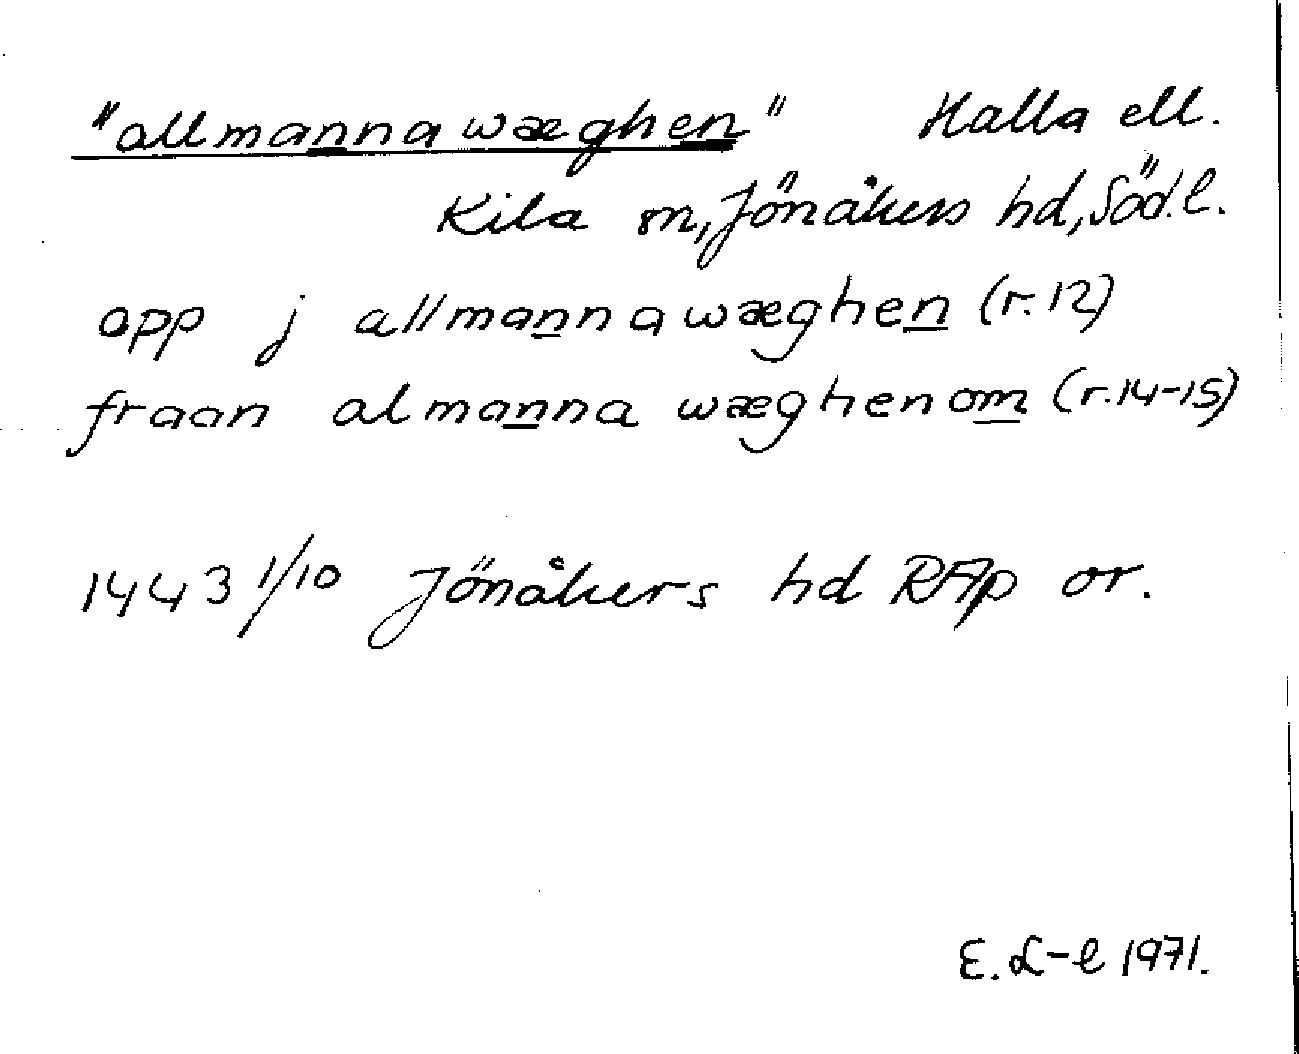 "allmanna wæghen" Halla ell.
Kila sn, Jönåkers hd, Söd.l.
opp j allmanna wæghen (r. 12)
fraan almanna wæghenom (r. 14-15)
1443 1/10 Jönåkers hd RAp or.
E. L-l 1971.